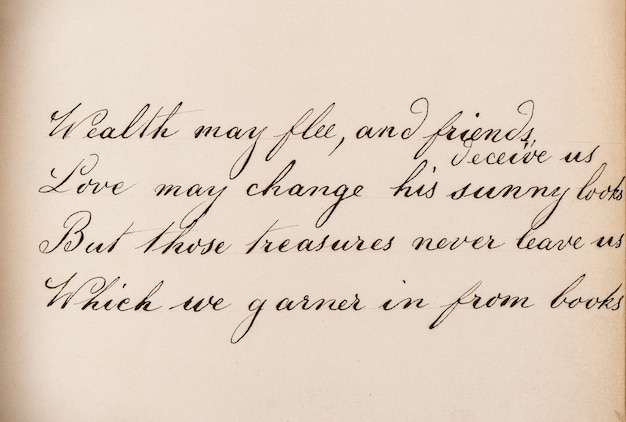 Wealth may flee, and friends
deceive us
Love may change his sunny looks
But those treasures never leave us
Which we garner in from books